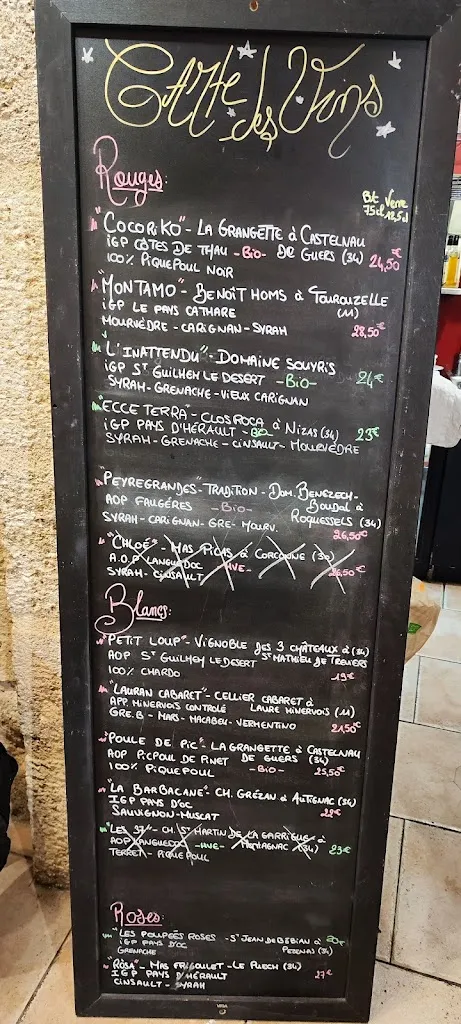 Carte des Vins
Rouges:
Bt Verre
75cl 12,5cl
"COCORIKO" - LA GRANGETTE à CASTELNAU
IGP CÔTES DE THAU - Bio - DE GUERS (34) 24,50€
100% PIQUEPOUL NOIR
"MONTAMO" - BENOÎT HOMS à TOUROUZELLE
IGP LE PAYS CATHARE (11)
MOURVÈDRE - CARIGNAN - SYRAH 28,50€
"L'INATTENDU" - DOMAINE SOUYRIS
IGP ST GUILHEM LE DESERT - BIO - 24€
SYRAH - GRENACHE - VIEUX CARIGNAN
"ECCE TERRA" - CLOS ROCA à NIZAS (34)
IGP PAYS D'HÉRAULT - BIO - 23€
SYRAH - GRENACHE - CINSAULT - MOURVÈDRE
"PEYREGRANDES" - TRADITION - DOM. BENEZECH -
BOUDAL à
AOP FAUGÉRES - Bio - ROQUESSELS (34)
SYRAH - CARIGNAN - GRE - MOURV. 26,50€
"CHLOÉ" - MAS PICAS à CORCONNE (30)
A.O.P LANGUEDOC - HVE - 26,50€
SYRAH - CINSAULT
Blancs:
"PETIT LOUP" - VIGNOBLE DES 3 CHÂTEAUX à (34)
AOP ST GUILHEM LE DESERT ST MATHIEU DE TREVIERS
100% CHARDO 19€
"LAURAN CABARET" - CELLIER CABARET à
APP. MINERVOIS CONTROLÉ LAURE MINERVOIS (11)
GRE.B - MARS - MACABEU - VERMENTINO 21,50€
"POULE DE PIC" - LA GRANGETTE à CASTELNAU
AOP PICPOUL DE PINET DE GUERS (34)
100% PIQUEPOUL - BIO - 25,50€
"LA BARBACANE" CH. GRÉZAN à AUTIGNAC (34)
IGP PAYS D'OC
SAUVIGNON - MUSCAT 22€
"LES - CH. ST MARTIN DE LA GARRIGUE à
AOP LANGUEDOC - HVE - MONTAGNAC (34) 23€
TERRET - PIQUEPOUL
Rosés:
"LES POUPÉES ROSES - ST JEAN DE BÉBIAN à 20€
IGP PAYS D'OC PEZENAS (34)
GRENACHE
"ROSA" - MAS FRIGOULET - LE PUECH (34)
IGP PAYS D'HÉRAULT 27€
CINSAULT - SYRAH